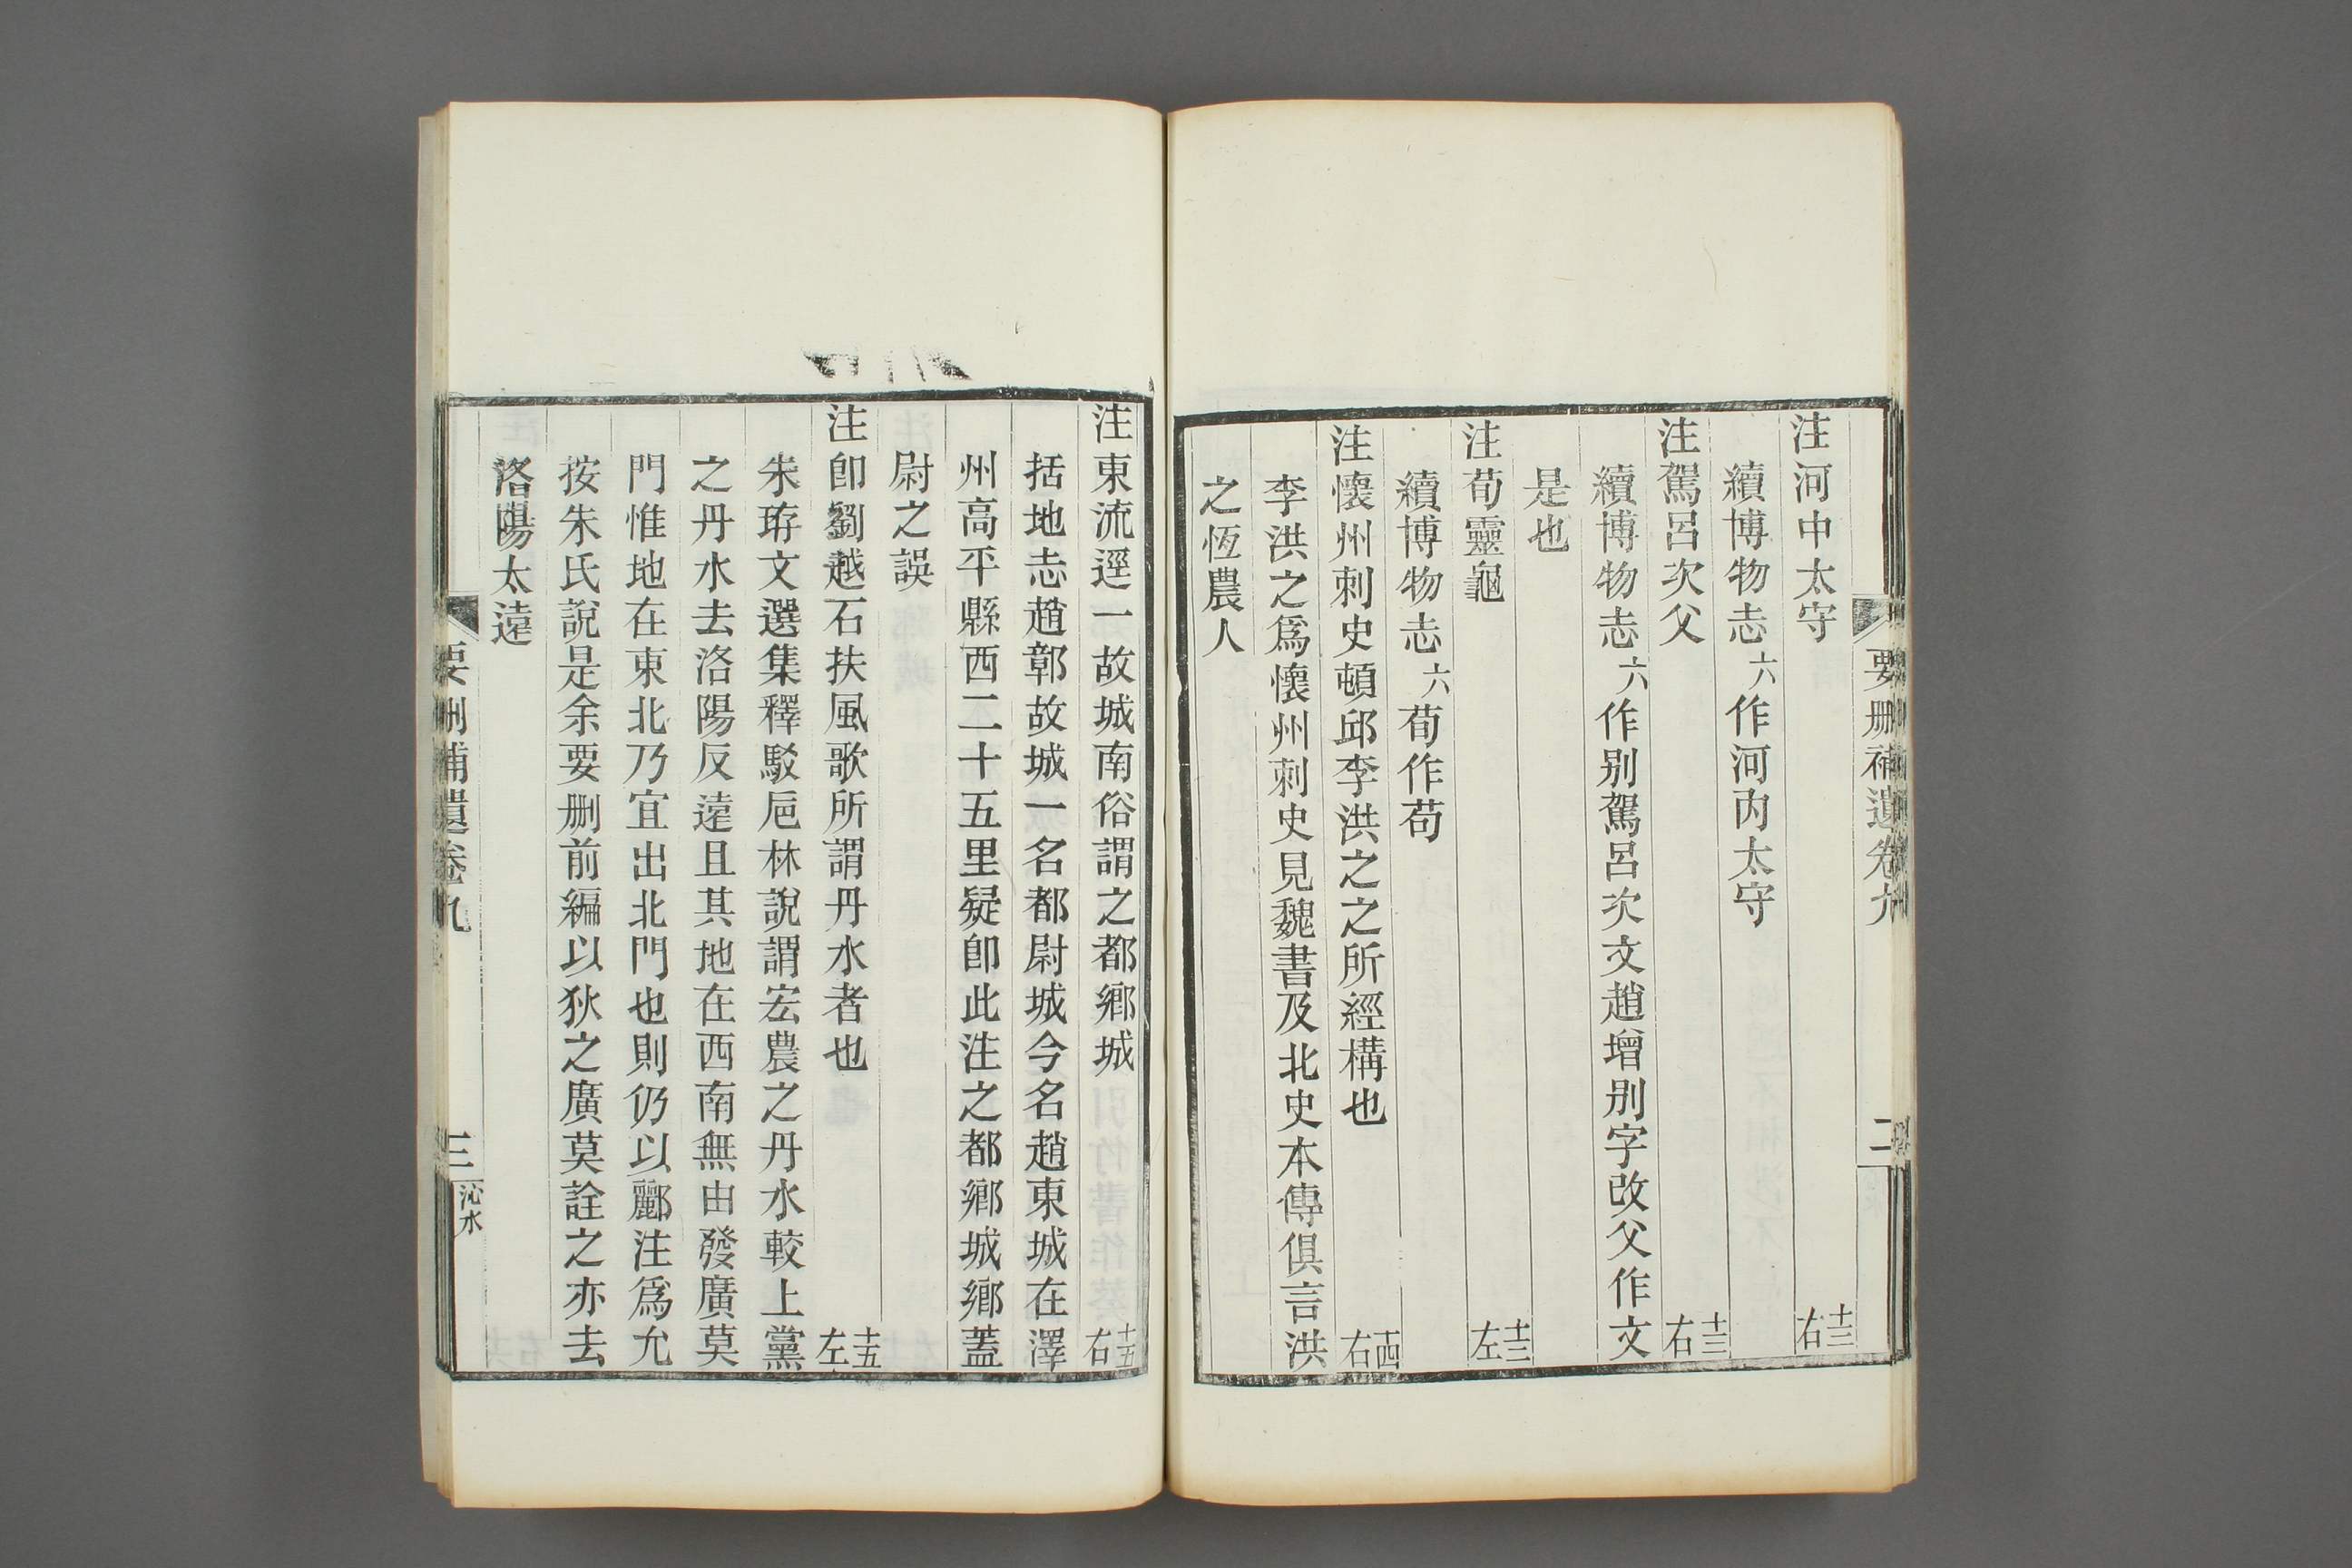 要刪補遺卷九
二
注河中太守 十三右
續博物志六作河內太守
注駕呂次父 十三右
續博物志六作別駕呂次文趙增別字改父作文
是也
注荀靈龜 十三左
續博物志六荀作苟
注懷州刺史頓邱李洪之之所經構也 十四右
李洪之爲懷州刺史見魏書及北史本傳俱言洪
之恆農人
注東流逕一故城南俗謂之都鄉城 十五右
括地志趙鄣故城一名都尉城今名趙東城在澤
州高平縣西二十五里疑卽此注之都鄉城鄉蓋
尉之誤
注卽劉越石扶風歌所謂丹水者也 十五左
朱珔文選集釋駁巵林說謂宏農之丹水較上黨
之丹水去洛陽反遠且其地在西南無由發廣莫
門惟地在東北乃宜出北門也則仍以酈注爲允
按朱氏說是余要刪前編以狄之廣莫詮之亦去
洛陽太遠
要刪補遺卷九
三
沁水